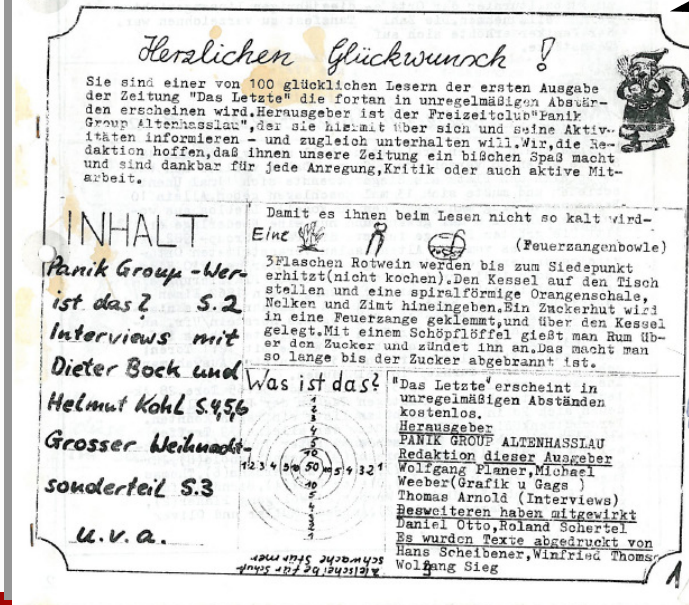 Herzlichen Glückwunsch !
Sie sind einer von 100 glücklichen Lesern der ersten Ausgabe
der Zeitung "Das Letzte" die fortan in unregelmäßigen Abstän-
den erscheinen wird.Herausgeber ist der Freizeitclub"Panik
Group Altenhasslau",der sie hiermit über sich und seine Aktiv-
itäten informieren - und zugleich unterhalten will.Wir,die Re-
daktion hoffen,daß ihnen unsere Zeitung ein bißchen Spaß macht
und sind dankbar für jede Anregung,Kritik oder auch aktive Mit-
arbeit.
INHALT
Panik Group - Wer-
ist das? S.2
Interviews mit
Dieter Bock und
Helmut Kohl S.4,5,6
Grosser Weihnacht-
sonderteil S.3
u.v.a.
Damit es ihnen beim Lesen nicht so kalt wird-
Eine
(Feuerzangenbowle)
3Flaschen Rotwein werden bis zum Siedepunkt
erhitzt(nicht kochen).Den Kessel auf den Tisch
stellen und eine spiralförmige Orangenschale,
Nelken und Zimt hineingeben.Ein Zuckerhut wird
in eine Feuerzange geklemmt,und über den Kessel
gelegt.Mit einem Schöpflöffel gießt man Rum üb-
er den Zucker und zündet ihn an.Das macht man
so lange bis der Zucker abgebrannt ist.
Was ist das?
1
2
3
4
5
10
1 2 3 4 5 10 50 10 5 4 3 2 1
10
5
4
3
2
1
Zielscheibe für Schuß
schwache Stürmer
"Das Letzte" erscheint in
unregelmäßigen Abständen
kostenlos.
Herausgeber
PANIK GROUP ALTENHASSLAU
Redaktion dieser Ausgeber
Wolfgang Planer,Michael
Weeber(Grafik u Gags )
Thomas Arnold (Interviews)
Desweiteren haben mitgewirkt
Daniel Otto,Roland Schertel
Es wurden Texte abgedruckt von
Hans Scheibener,Winfried Thomse
Wolfgang Sieg
1